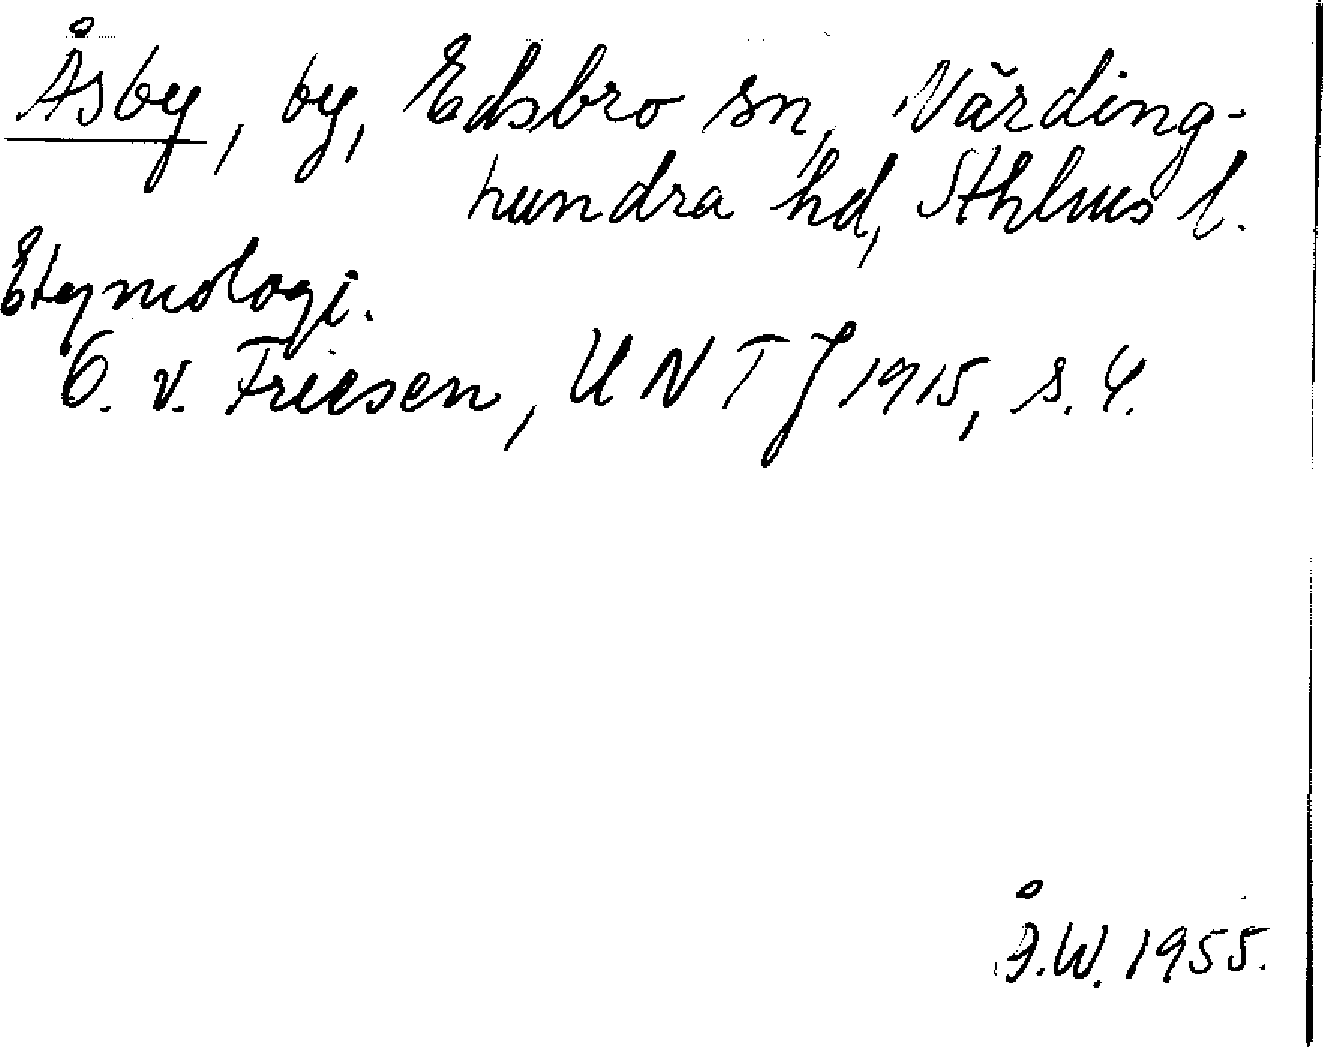 Åsby, by, Edsbro sn, Närding-
hundra hd, Sthlms l.
Etymologi.
O. v. Friesen, UNTJ 1915, s. 4.
Å.W. 1955.